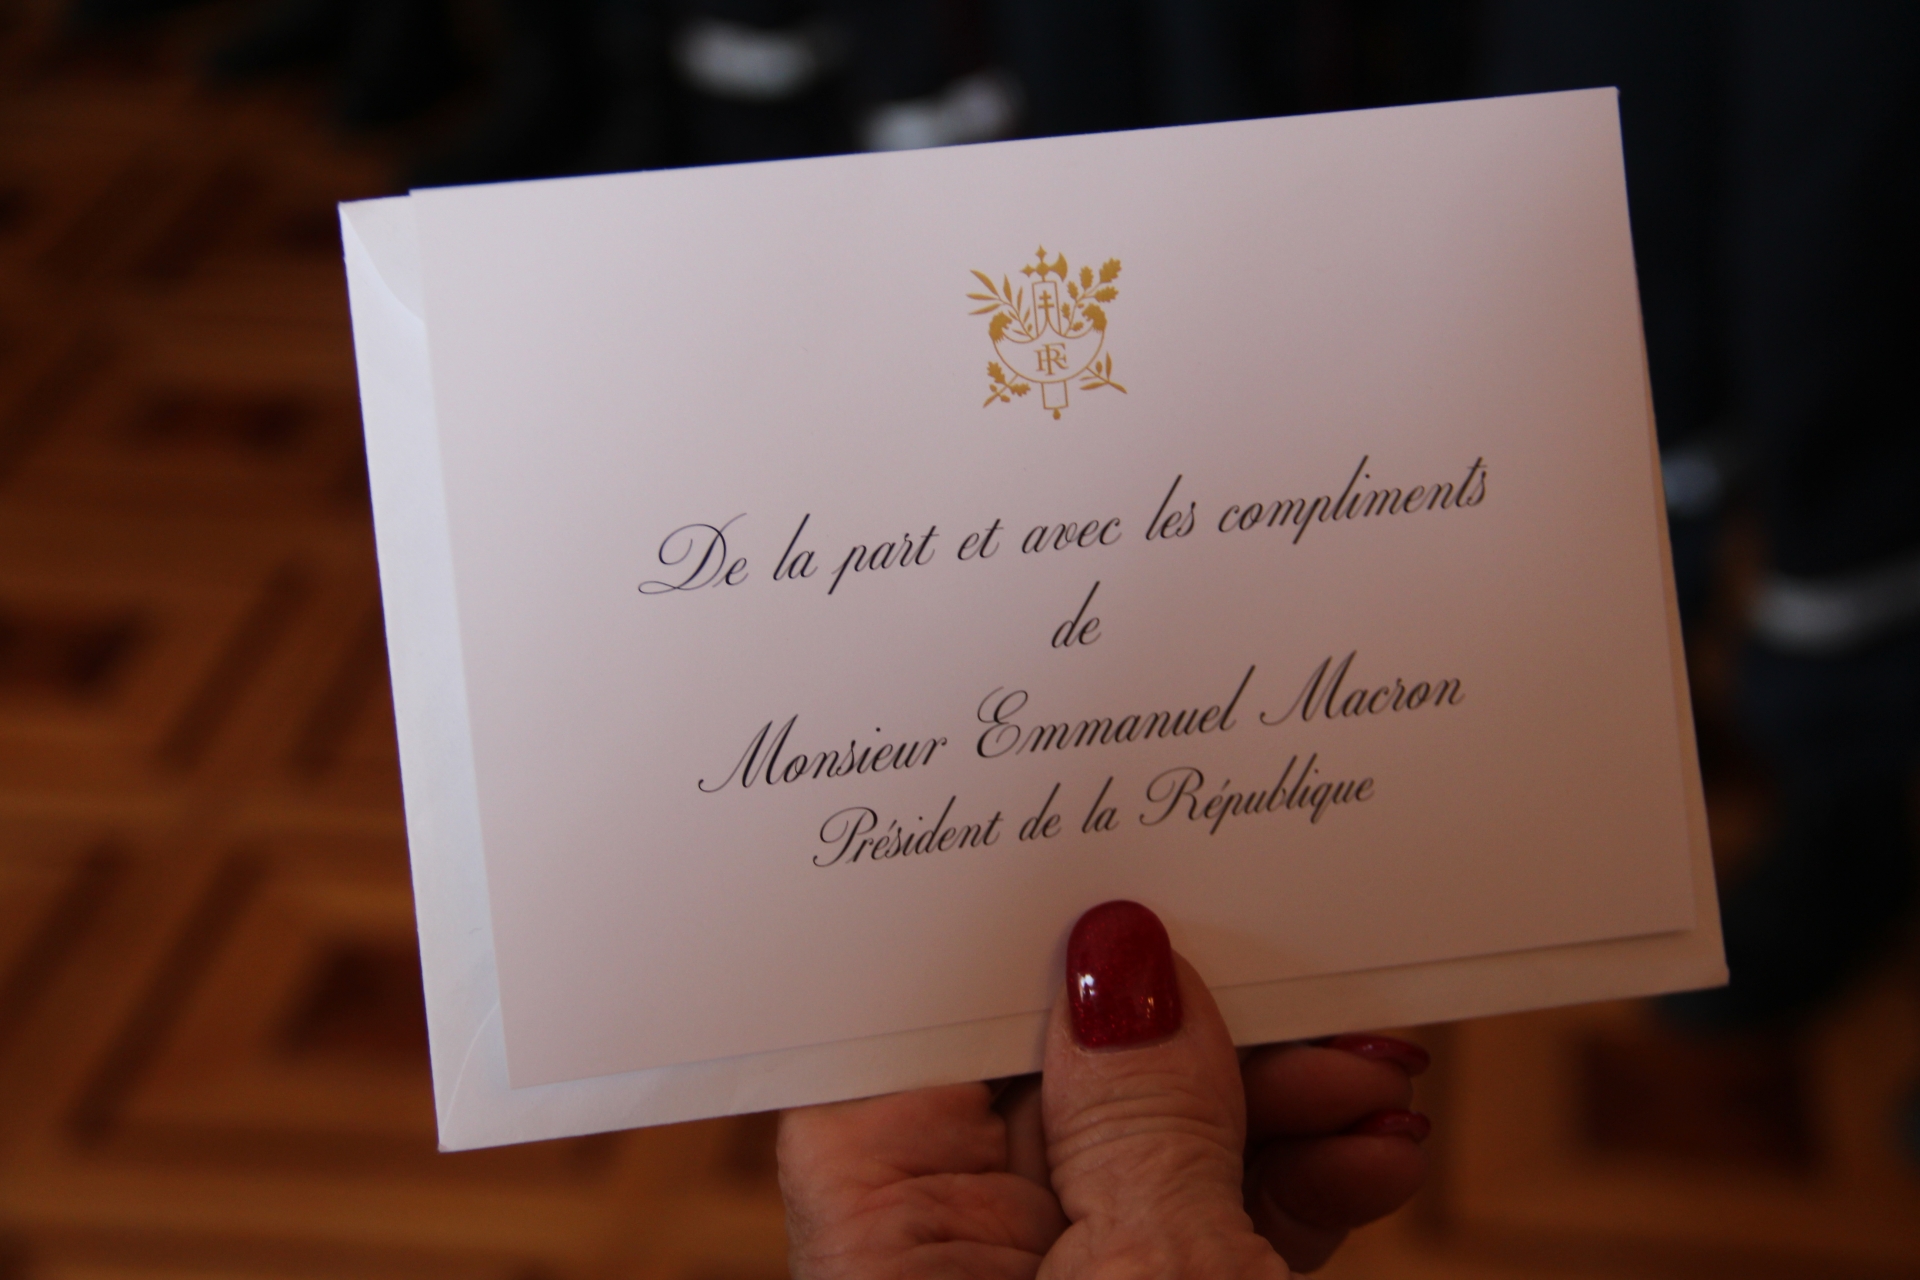 RF
De la part et avec les compliments
de
Monsieur Emmanuel Macron
Président de la République